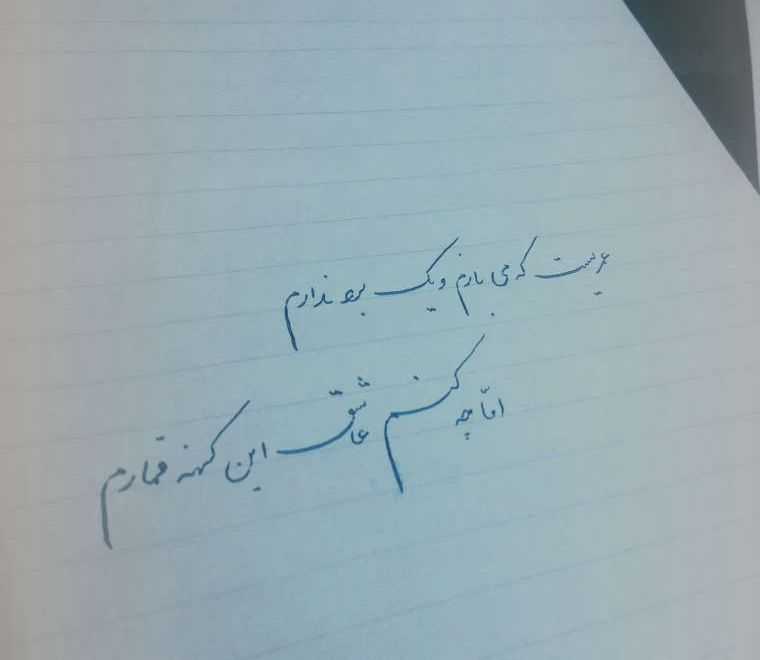 عمریست که می بازم و یک برد ندارم
امّا چه کنم عاشق این کهنه قمارم